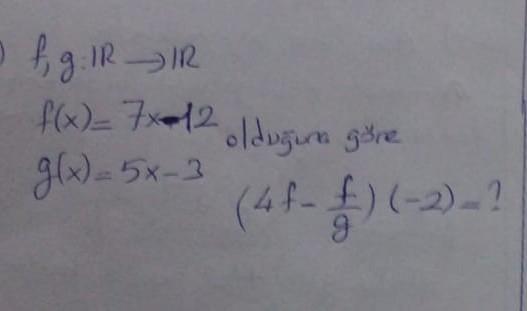 ) f, g: IR → IR
f(x) = 7x-12
olduğuna göre
g(x) = 5x-3
(4f - f/g) (-2) = ?